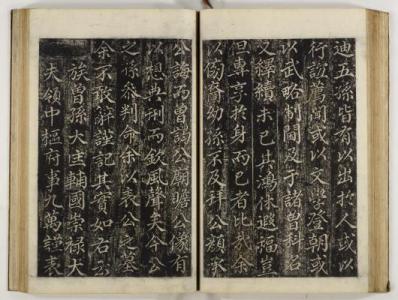 迪五孫皆有以出於人或以
行誼薦聞或以文學登朝或
以武略制閫及于諸曾科名
又繹續未已其鴻休遐福豈
但專享於身而已者比哉余
以傍裔幼孫不及拜公顔承
公誨而曾謁公廟瞻公像有
以想典刑而欽風聲矣今公
之孫叅判命余以表公之墓
余不敢辭謹記其實如右云
族曾孫大匡輔國崇祿大
夫領中樞府事九萬謹表